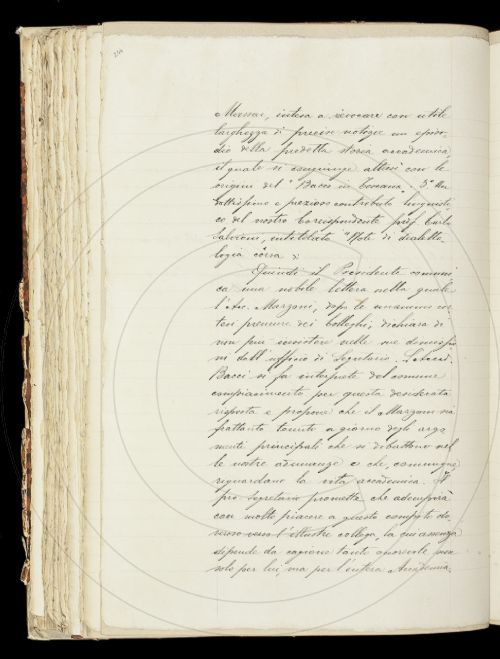 Messau, intesa a rievocare con utile
larghezza di precise notizie un episo-
dio della predetta storia accademica,
il quale si congiunge altresì con le
origini del "Bacco in Toscana". 5° Un
dottissimo e prezioso contributo linguisti-
co del nostro Corrispondente prof. Carlo
Salvioni, intitolato "Note di dialetto-
logia côrsa"
Quindi il Presidente comuni-
ca una nobile lettera nella quale
l'Avv. Marzoni, dopo le unanimi cor-
tesi premure dei Colleghi, dichiara di
non più insistere nelle sue dimissio-
ni dall'ufficio di Segretario. L'Accad.
Bacci si fa interprete del comune
compiacimento per questa desiderata
risposta e propone che il Marzoni sia
frattanto tenuto a giorno degli argo-
menti principali che si dibattono nel-
le nostre adunanze e che, comunque,
riguardano la vita accademica. Il
pro-segretario promette che adempirà
con molto piacere a questo compito do-
veroso verso l'illustre collega, la cui assenza
dipende da cagione tanto onorevole non
solo per lui, ma per l'intera Accademia.